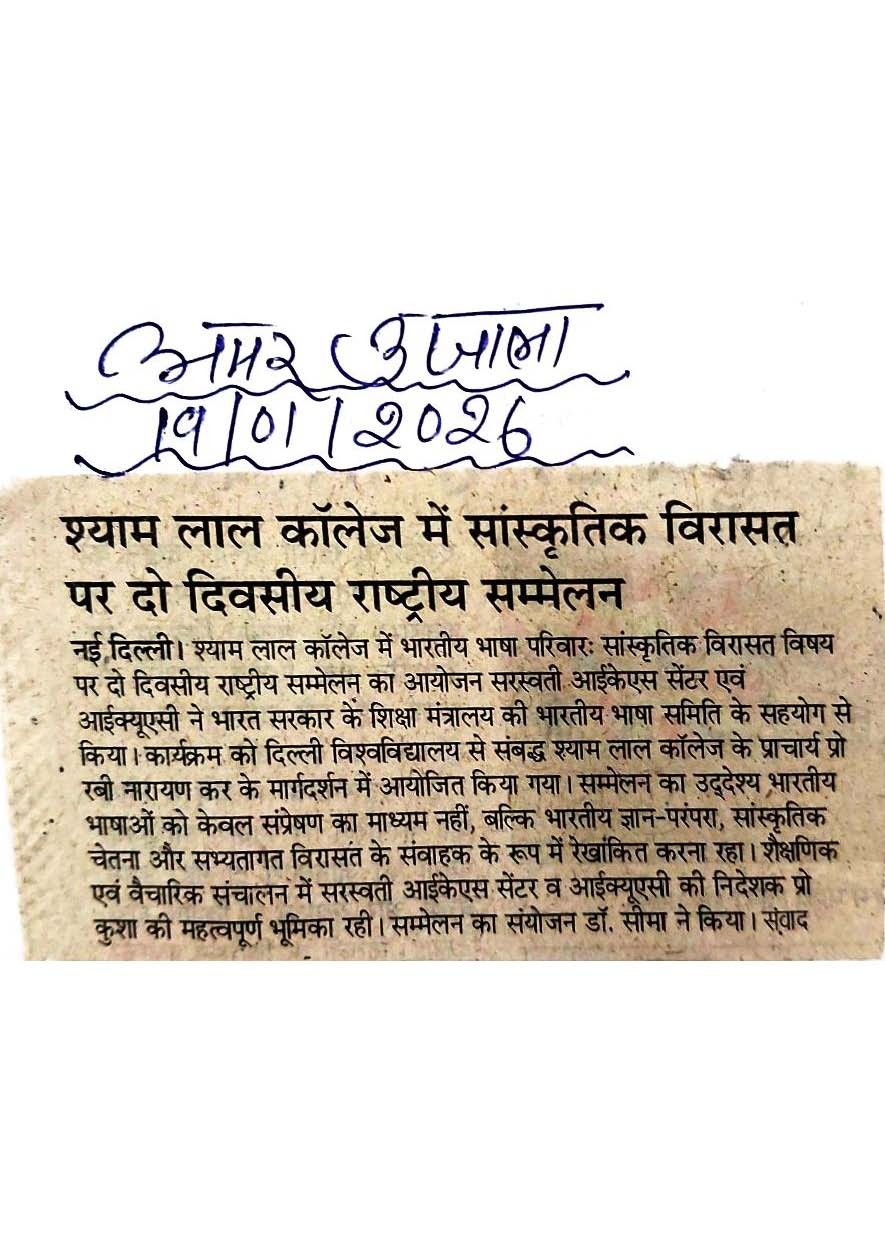 अमर उजाला
19/01/2026
श्याम लाल कॉलेज में सांस्कृतिक विरासत
पर दो दिवसीय राष्ट्रीय सम्मेलन
नई दिल्ली। श्याम लाल कॉलेज में भारतीय भाषा परिवारः सांस्कृतिक विरासत विषय
पर दो दिवसीय राष्ट्रीय सम्मेलन का आयोजन सरस्वती आईकेएस सेंटर एवं
आईक्यूएसी ने भारत सरकार के शिक्षा मंत्रालय की भारतीय भाषा समिति के सहयोग से
किया। कार्यक्रम को दिल्ली विश्वविद्यालय से संबद्ध श्याम लाल कॉलेज के प्राचार्य प्रो
रबी नारायण कर के मार्गदर्शन में आयोजित किया गया। सम्मेलन का उद्देश्य भारतीय
भाषाओं को केवल संप्रेषण का माध्यम नहीं, बल्कि भारतीय ज्ञान-परंपरा, सांस्कृतिक
चेतना और सभ्यतागत विरासत के संवाहक के रूप में रेखांकित करना रहा। शैक्षणिक
एवं वैचारिक संचालन में सरस्वती आईकेएस सेंटर व आईक्यूएसी की निदेशक प्रो
कुशा की महत्वपूर्ण भूमिका रही। सम्मेलन का संयोजन डॉ. सीमा ने किया। संवाद